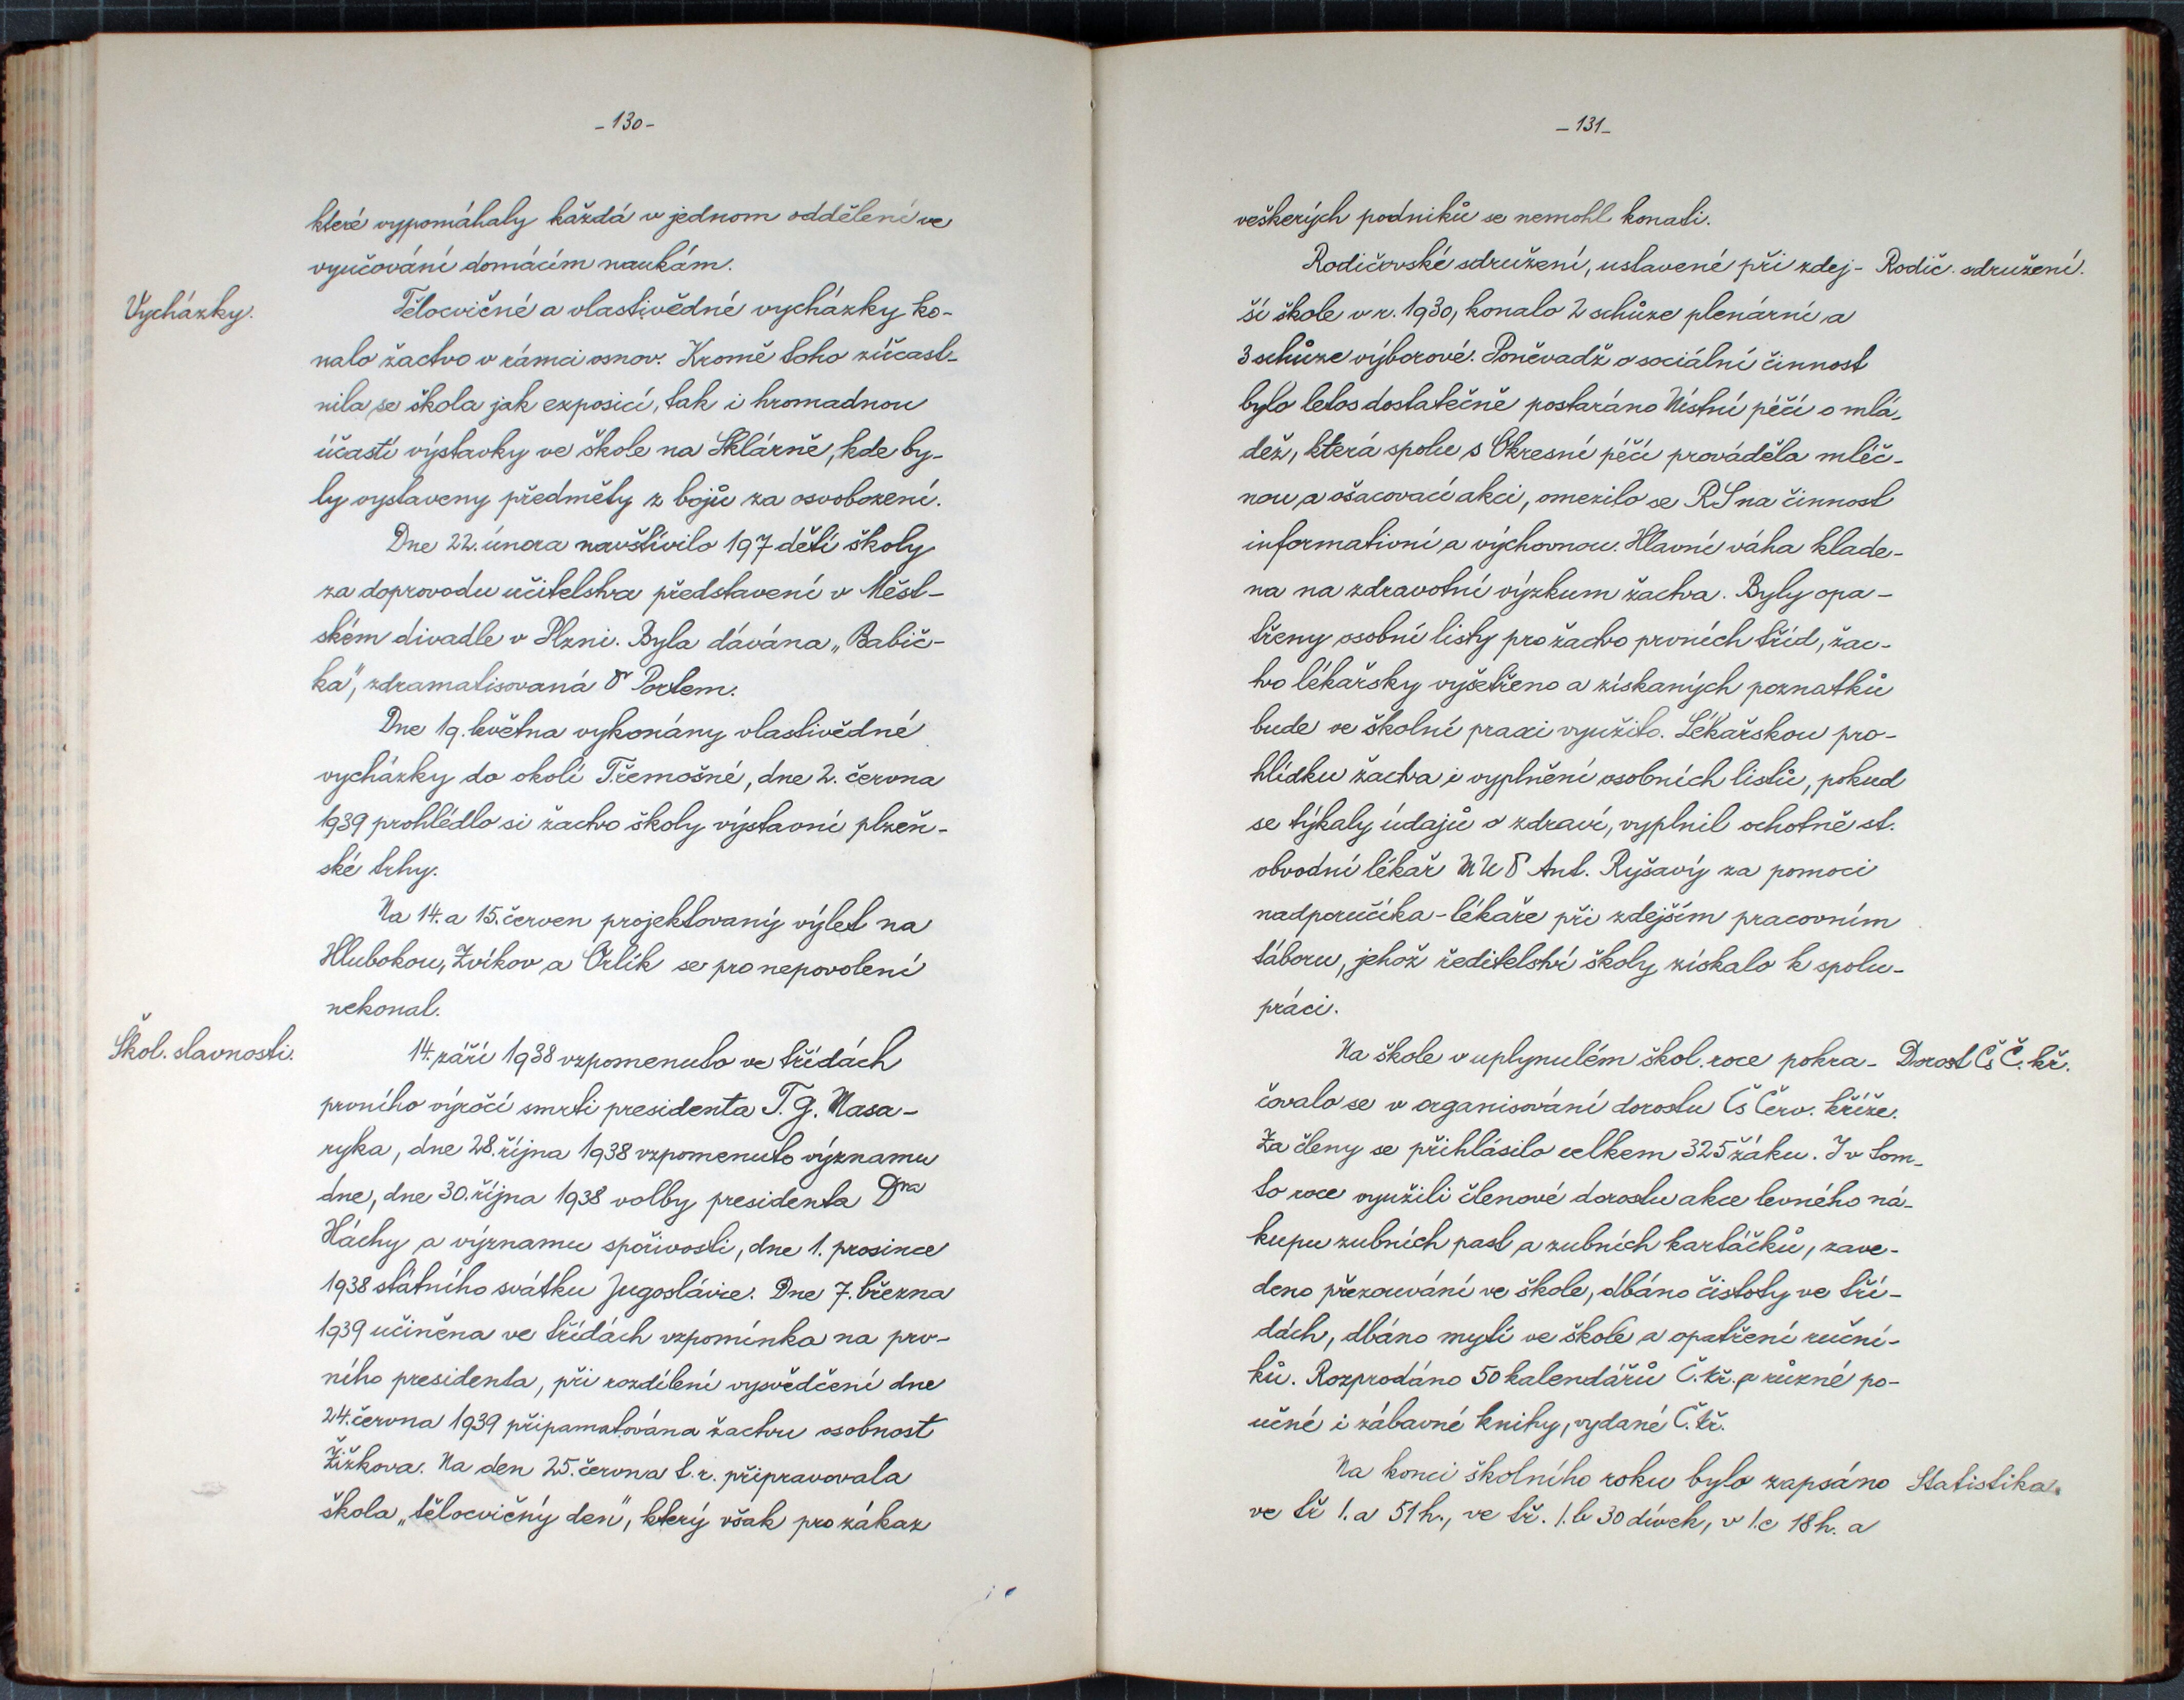 - 130 -
které vypomáhaly každá v jednom oddělení ve
vyučování domácím naukám.
Vycházky.
Tělocvičné a vlastivědné vycházky ko-
nalo žactvo v rámci osnov. Kromě toho zúčast-
nila se škola jak exposicí, tak i hromadnou
účastí výstavky ve škole na Sklárně, kde by-
ly vystaveny předměty z bojů za osvobození.
Dne 22. února navštívilo 197 dětí školy
za doprovodu učitelstva představení v Měst-
ském divadle v Plzni. Byla dávána „Babič-
ka", zdramatisovaná Dr Portem.
Dne 19. května vykonány vlastivědné
vycházky do okolí Třemošné, dne 2. června
1939 prohlédlo si žactvo školy výstavní plzeň-
ské trhy.
Na 14. a 15. červen projektovaný výlet na
Hlubokou, Zvíkov a Orlík se pro nepovolení
nekonal.
Škol. slavnosti.
14. září 1938 vzpomenuto ve třídách
prvního výročí smrti presidenta T. G. Masa-
ryka, dne 28. října 1938 vzpomenuto významu
dne, dne 30. října 1938 volby presidenta Dra
Háchy a významu spořivosti, dne 1. prosince
1938 státního svátku Jugoslávie. Dne 7. března
1939 učiněna ve třídách vzpomínka na prv-
ního presidenta, při rozdílení vysvědčení dne
24. června 1939 připamatována žactvu osobnost
Žižkova. Na den 25. června t. r. připravovala
škola „tělocvičný den", který však pro zákaz
- 131 -
veškerých podniků se nemohl konati.
Rodičovské sdružení, ustavené při zdej-
Rodič. sdružení.
ší škole v r. 1930, konalo 2 schůze plenární a
3 schůze výborové. Poněvadž o sociální činnost
bylo letos dostatečně postaráno Místní péčí o mlá-
dež, která spolu s Okresní péčí prováděla mléč-
nou a ošacovací akci, omezilo se RS na činnost
informativní a výchovnou. Hlavní váha klade-
na na zdravotní výzkum žactva. Byly opa-
třeny osobní listy pro žactvo prvních tříd, žac-
tvo lékařsky vyšetřeno a získaných poznatků
bude ve školní praxi využito. Lékařskou pro-
hlídku žactva i vyplnění osobních listů, pokud
se týkaly údajů o zdraví, vyplnil ochotně st.
obvodní lékař MUDr Ant. Ryšavý za pomoci
nadporučíka-lékaře při zdejším pracovním
táboru, jehož ředitelství školy získalo k spolu-
práci.
Na škole v uplynulém škol. roce pokra-
Dorost Čs Č. kř.
čovalo se v organisování dorostu Čs Červ. kříže.
Za členy se přihlásilo celkem 325 žáku. I v tom-
to roce využili členové dorostu akce levného ná-
kupu zubních past a zubních kartáčků, zave-
deno přezouvání ve škole, dbáno čistoty ve tří-
dách, dbáno mytí ve škole a opatření ruční-
ků. Rozprodáno 50 kalendářů Č. kř. a různé po-
učné i zábavné knihy, vydané Č. kř.
Na konci školního roku bylo zapsáno
Statistika.
ve tř 1. a 51 h., ve tř. 1. b 30 dívek, v 1. c 18 h. a